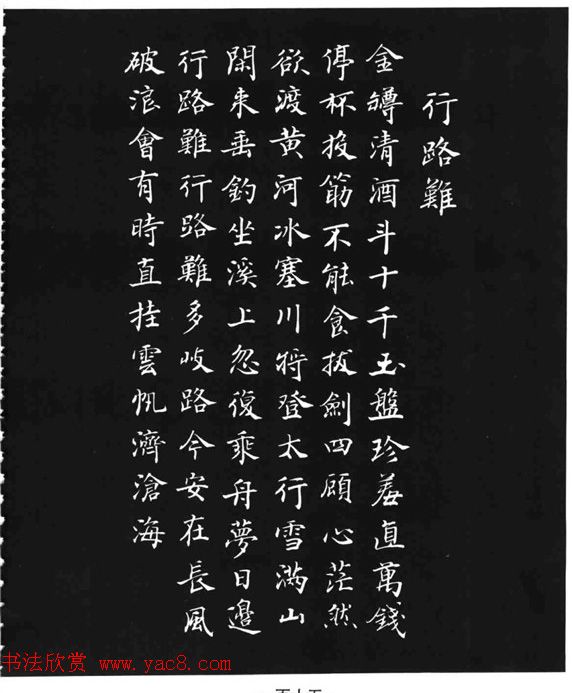 行路難
金罇清酒斗十千玉盤珍羞直萬錢
停杯投筯不能食拔劍四顧心茫然
欲渡黃河冰塞川將登太行雪滿山
閑来垂釣坐溪上忽復乘舟夢日邊
行路難行路難多岐路今安在長風
破浪會有時直挂雲帆濟滄海
书法欣赏 www.yac8.com